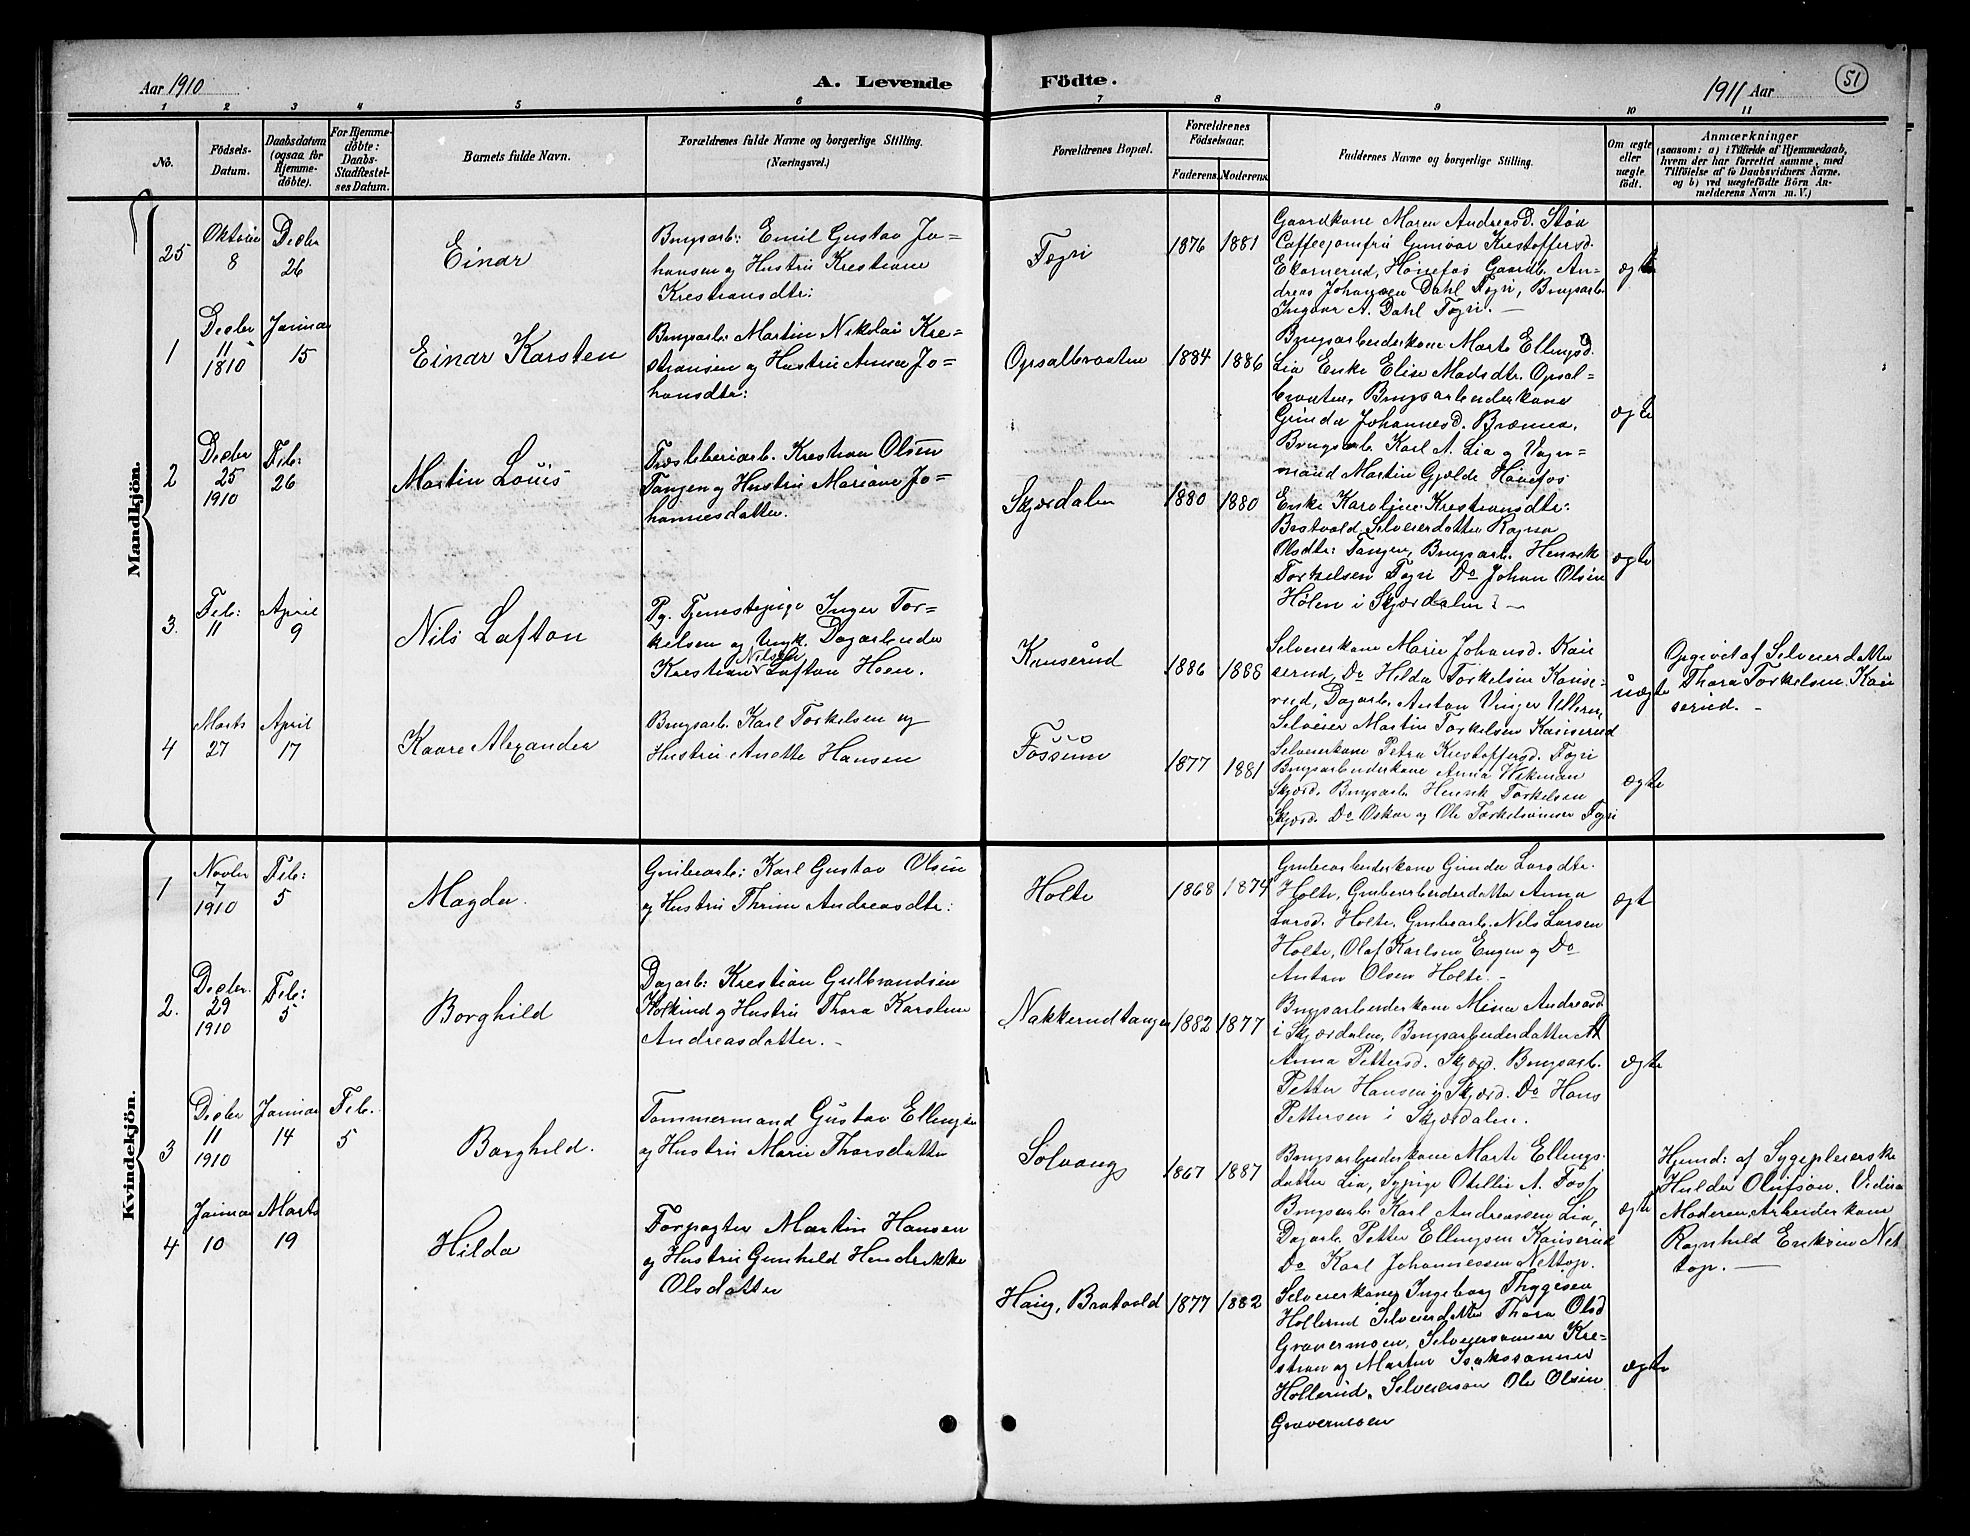 Aar 1910
A. Levende
Födte.
1911 Aar
51
1 2 3 4 5 6 7 8 9 10 11
No.
Födsels-
Datum.
Daabsdatum
(ogsaa for
Hjemme-
döbte).
For Hjemme-
döbte:
Daabs-
Stadfæstel-
ses Datum.
Barnets fulde Navn.
Forældrenes fulde Navne og borgerlige Stilling.
(Næringsvei.)
Forældrenes Bopæl.
Forældrenes
Födselsaar.
Faderens. Moderens.
Faddernes Navne og borgerlige Stilling.
Om ægte
eller
uægte
födt.
Anmærkninger
(saasom: a) i Tilfælde af Hjemmedaab,
hvem der har forrettet samme, med
Tilföielse af to Daabsvidners Navne.
og b) ved uægtefödte Börn An-
melderens Navn m. V.)
Mandkjön.
25
Oktober
8
Decbr
26
Einar
Brugsarb: Emil Gustav Jo-
hansen og Hustru Krestiane
Krestiansdtr:
Togri
1876
1881
Gaardkone Maren Andreasd. Stöa
Caffeejomfru Gunvor Krestoffersd.
Ekornerud, Hönefos Gaardb. An-
dreas Johansen Dahl Togri, Brugsarb.
Ingvar A. Dahl Togri. -
ægte
1
Decbr
11
1810
Januar
15
Einar Karsten
Brugsarb: Martin Nikolai Kre-
stiansen og Hustru Anna Jo-
hansdtr:
Opsalbraaten
1884
1886
Brugsarbeiderkone Marte Ellingsd.
Lia Enke Elise Madsdtr. Opsal-
braaten, Brugsarbeiderkone
Gunda Johannesd. Bræmna,
Brugsarb. Karl A. Lia og Vogn-
mand Martin Gjelde Hönefos
ægte
2
Decbr
25
1910
Feb:
26
Martin Louis
Træsliberiarb. Krestian Olsen
Tangen og Hustru Mariane Jo-
hannesdatter.
Skjærdalen
1880
1880
Enke Karoline Krestiansdtr:
Bratvold, Selveierdatter Ragna
Olsdtr: Tangen, Brugsarb. Henrik
Torkelsen Togri Do Johan Olsen
Hølen i Skjærdalen. -
ægte
3.
Feb:
11
April
9
Nils Lafton
Pg. Tjenestepige Inger Tor-
kelsen og Ungk. Dagarbeider
Krestian Nilsen Lafton Hoen.
Kanserud
1886
1888
Selveierkone Marie Johansd. Kan
serud, Do Hilda Torkelsen Kanse-
rud, Dagarb. Anton Vinger Ullern,
Selveier Martin Torkelsen Kanserud
uægte
Opgivet af Selveierdatter
Thora Torkelsen Kan
serud. -
4
Marts
27
April
17
Kaare Alexander
Brugsarb. Karl Torkelsen og
Hustru Anette Hansen
Fossum
1877
1881
Selveierkone Petra Krestoffersd. Togri
Brugsarbeiderkone Anna Wikman
Skjærd. Brugsarb. Henrik Torkelsen
Skjærd. Do Oskar og Ole Torkelsönner Togri
ægte
Kvindekjön.
1
Novbr
7
1910
Feb:
5
Magda.
Grubearb: Karl Gustav Olsen
og Hustru Thrine Andreasdtr:
Holte
1868
1874
Grubearbeiderkone Gunda Larsdtr.
Holte, Grubearbeiderdatter Anna
Larsd. Holte, Grubearb. Nils Larsen
Holte, Olaf Karlsen Engen og Do
Anton Olsen Holte. -
ægt
2.
Decbr.
29
1910
Feb:
5
Borghild
Dagarb: Krestian Gulbrandsen
og Hustru Thora Karoline
Andreasdatter. -
Nakkerudtangen
1882
1877
Brugsarbeiderkone Mina Andreasd
i Skjærdalen, Brugsarbeiderdatter
Anna Pettersd. Skjærd. Brugsarb.
Petter Hansen i Skjærd. Do Hans
Pettersen i Skjærdalen.
ægte
3
Decbr
11
1910
Januar
14
Feb.
5
Borghild.
Tømmermand Gustav Ellingsen
og Hustru Marie Thorsdatter
Solvang
1867
1887
Brugsarbeiderkone Marte Ellings-
datter Lia, Sypige Otellie A. Foss,
Brugsarb Karl Andreassen Lia,
Dagarb. Petter Ellingsen Kanserud
Do Karl Johannessen Nettop.
ægte
Hjemd: af Sygepleierske
Hulda Olufson. Vidner
Moderen, Arbeiderkone
Ragnhild Eriksen Net
top. -
4
Januar
10
Marts
19
Hilda
Forpagter Martin Hansen
og Hustru Gunhild Hendrikke
Olsdatter
Haug, Bratvold
1877
1882
Selveierkone Ingeborg Thygesen
Hollerud Selveierdatter Thora Olsd
Gravermoen, Selveiersønner Kre-
stian og Martin Isakssønner
Hollerud, Selveiersøn Ole Olsen
Gravermoen
ægte